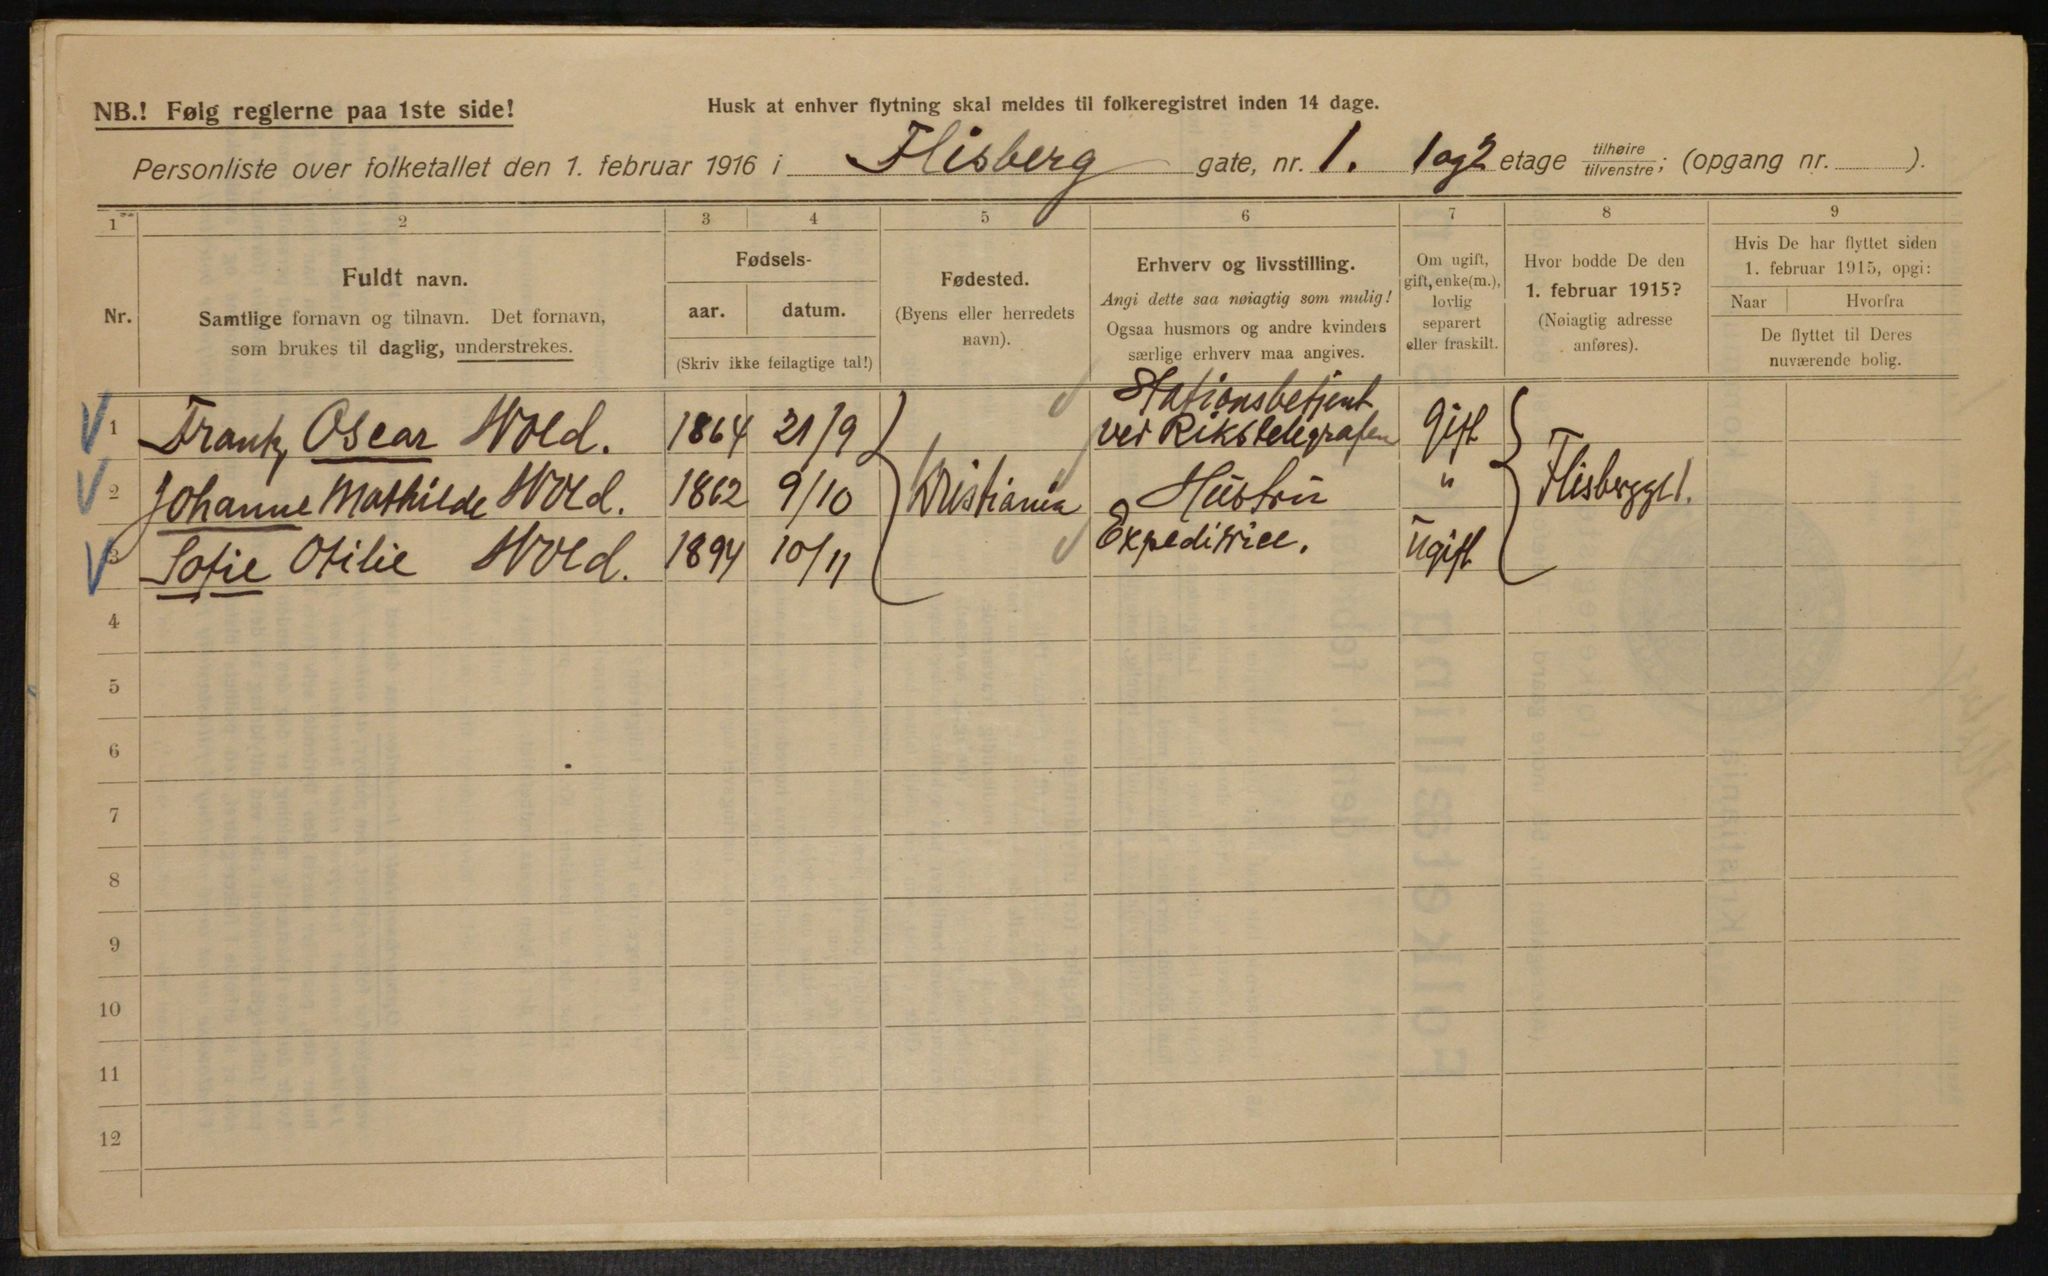 NB.! Følg reglerne paa 1ste side!
Husk at enhver flytning skal meldes til folkeregistret inden 14 dage.
Personliste over folketallet den 1. februar 1916 i Flisberg gate, nr. 1. 1 og 2 etage tilhøire/tilvenstre; (opgang nr. ).
1 2 3 4 5 6 7 8 9
Nr.
Fuldt navn.
Samtlige fornavn og tilnavn. Det fornavn,
som brukes til daglig, understrekes.
Fødsels-
aar. datum.
(Skriv ikke feilagtige tal!)
Fødested.
(Byens eller herredets
navn).
Erhverv og livsstilling.
Angi dette saa nøiagtig som mulig!
Ogsaa husmors og andre kvinders
særlige erhverv maa angives.
Om ugift,
gift, enke(m.),
lovlig
separert
eller fraskilt.
Hvor bodde De den
1. februar 1915?
(Nøiagtig adresse
anføres).
Hvis De har flyttet siden
1. februar 1915, opgi:
Naar Hvorfra
De flyttet til Deres
nuværende bolig.
1 Frantz Oscar Wold. 1864 21/9 Stationsbetjent
ved Rikstelegrafen gift
2 Johanne Mathilde Wold. 1862 9/10 Kristiania Hustru " Flisberggt 1.
3 Sofie Otilie Wold. 1894 10/11 Expeditrice. ugift
4
5
6
7
8
9
10
11
12